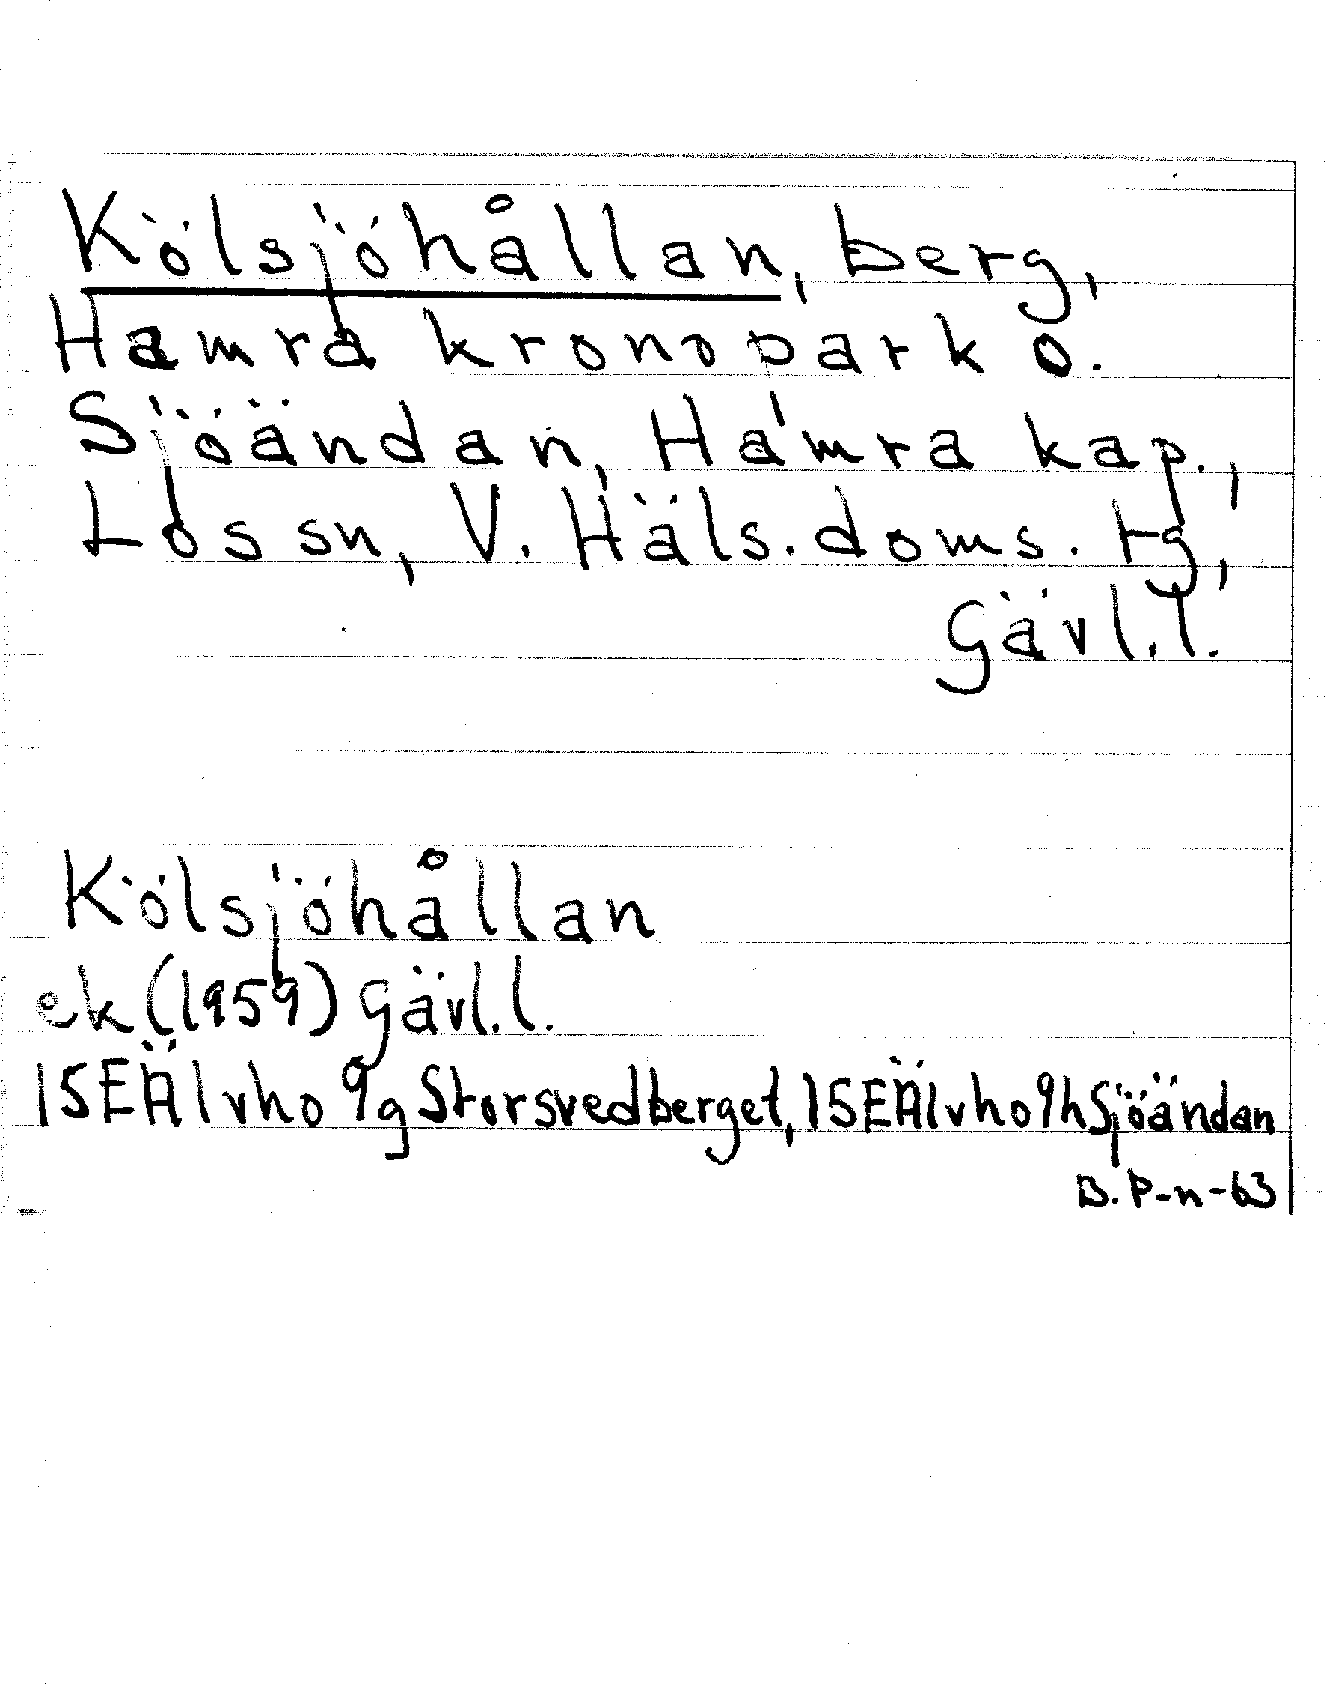 Kölsjöhållan, berg,
Hamra kronopark o.
Sjöändan, Hamra kap.,
Los sn, V. Häls. doms. tg,
Gävl. l.
Kölsjöhållan
ek (1959) Gävl. l.
15EÄlvho 9g Storsvedberget, 15EÄlvho9hSjöändan
B. P-n-63